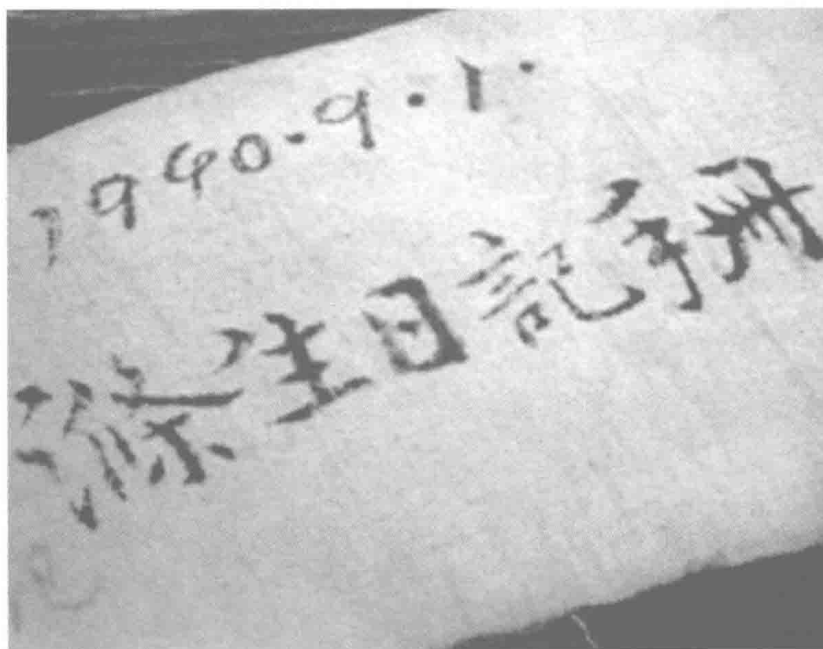 1940.9.1.
滌生日記手冊